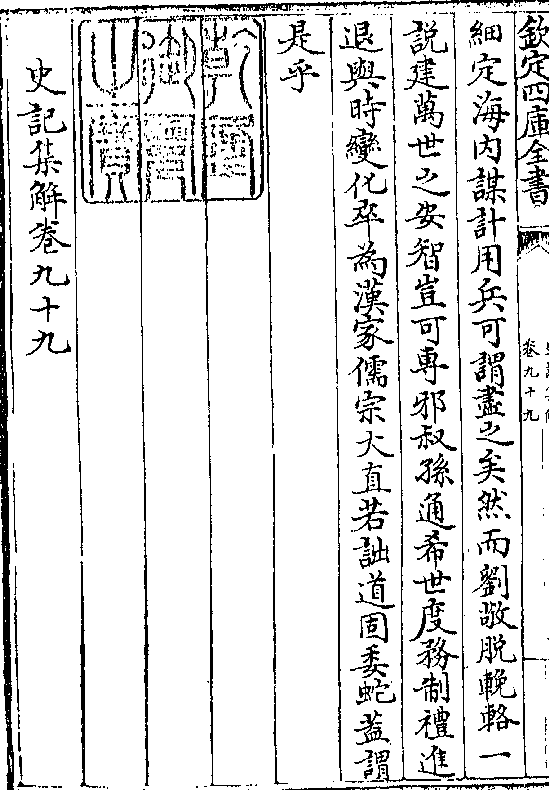 欽定四庫全書
卷九十九
細定海内謀計用兵可謂盡之矣然而劉敬脱輓輅一
説建萬世之安智豈可專邪叔孫通希世度務制禮進
退與時變化卒為漢家儒宗大直若詘道固委蛇葢謂
是乎
史記集解卷九十九